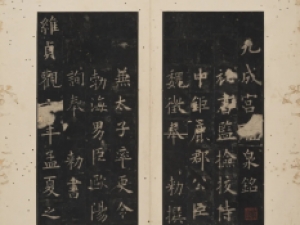 九成宮泉銘
秘書監檢挍侍
中鉅鹿郡公臣
魏徵奉 勅撰
兼太子率更令
勃海男臣歐陽
詢奉 勅書
維貞觀六年孟夏之